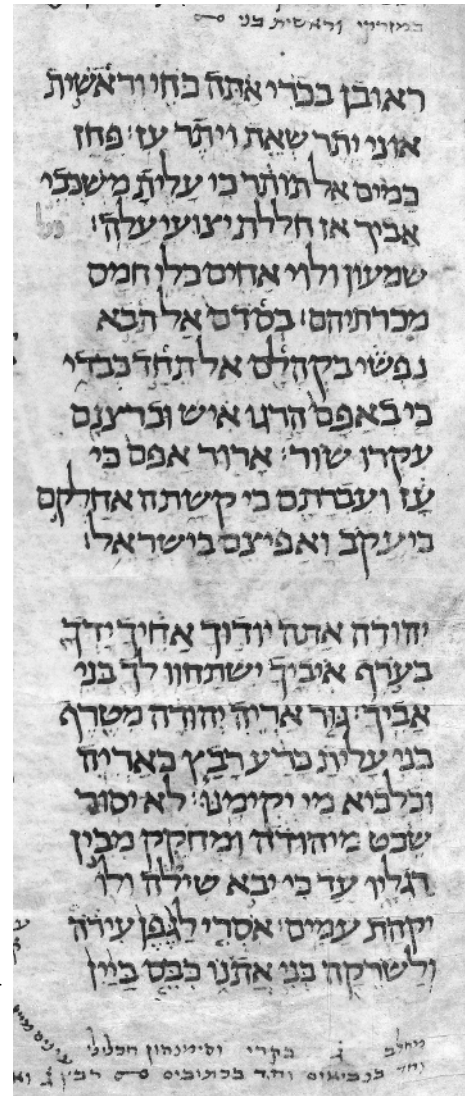 וראשית בני
ראובן בכרי אתה כחי וראשית
אוני יתר שאת ויתר עז׃ פחז
כמים אל תותר כי עלית משכבי
אביך אז חללת יצועי עלה׃
שמעון ולוי אחים כלי חמס
מכרתיהם׃ בסדם אל תבא
נפשי בקהלם אל תחד כבדי
כי באפם הרגו איש וברצנם
עקרו שור׃ ארור אפם כי
עז ועברתם כי קשתה אחלקם
ביעקב ואפיצם בישראל׃
יהודה אתה יודוך אחיך ידך
בערף איביך ישתחוו לך בני
אביך׃ גור אריה יהודה מטרף
בני עלית כרע רבץ כאריה
וכלביא מי יקימנו׃ לא יסור
שבט מיהודה ומחקק מבין
רגליו עד כי יבא שילה ולו
יקהת עמים׃ אסרי לגפן עירה
ולשרקה בני אתנו כבס ביין
מחלב ג בקרי וסימנהון חכלילי עינים מיין
וחד בנביאים וחד בכתובים רבץ ג